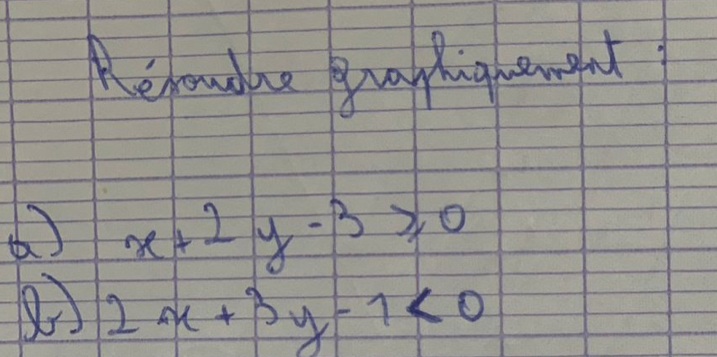 Résoudre graphiquement :
a) x + 2y - 3 ⩾ 0
b) 2x + 3y - 1 < 0